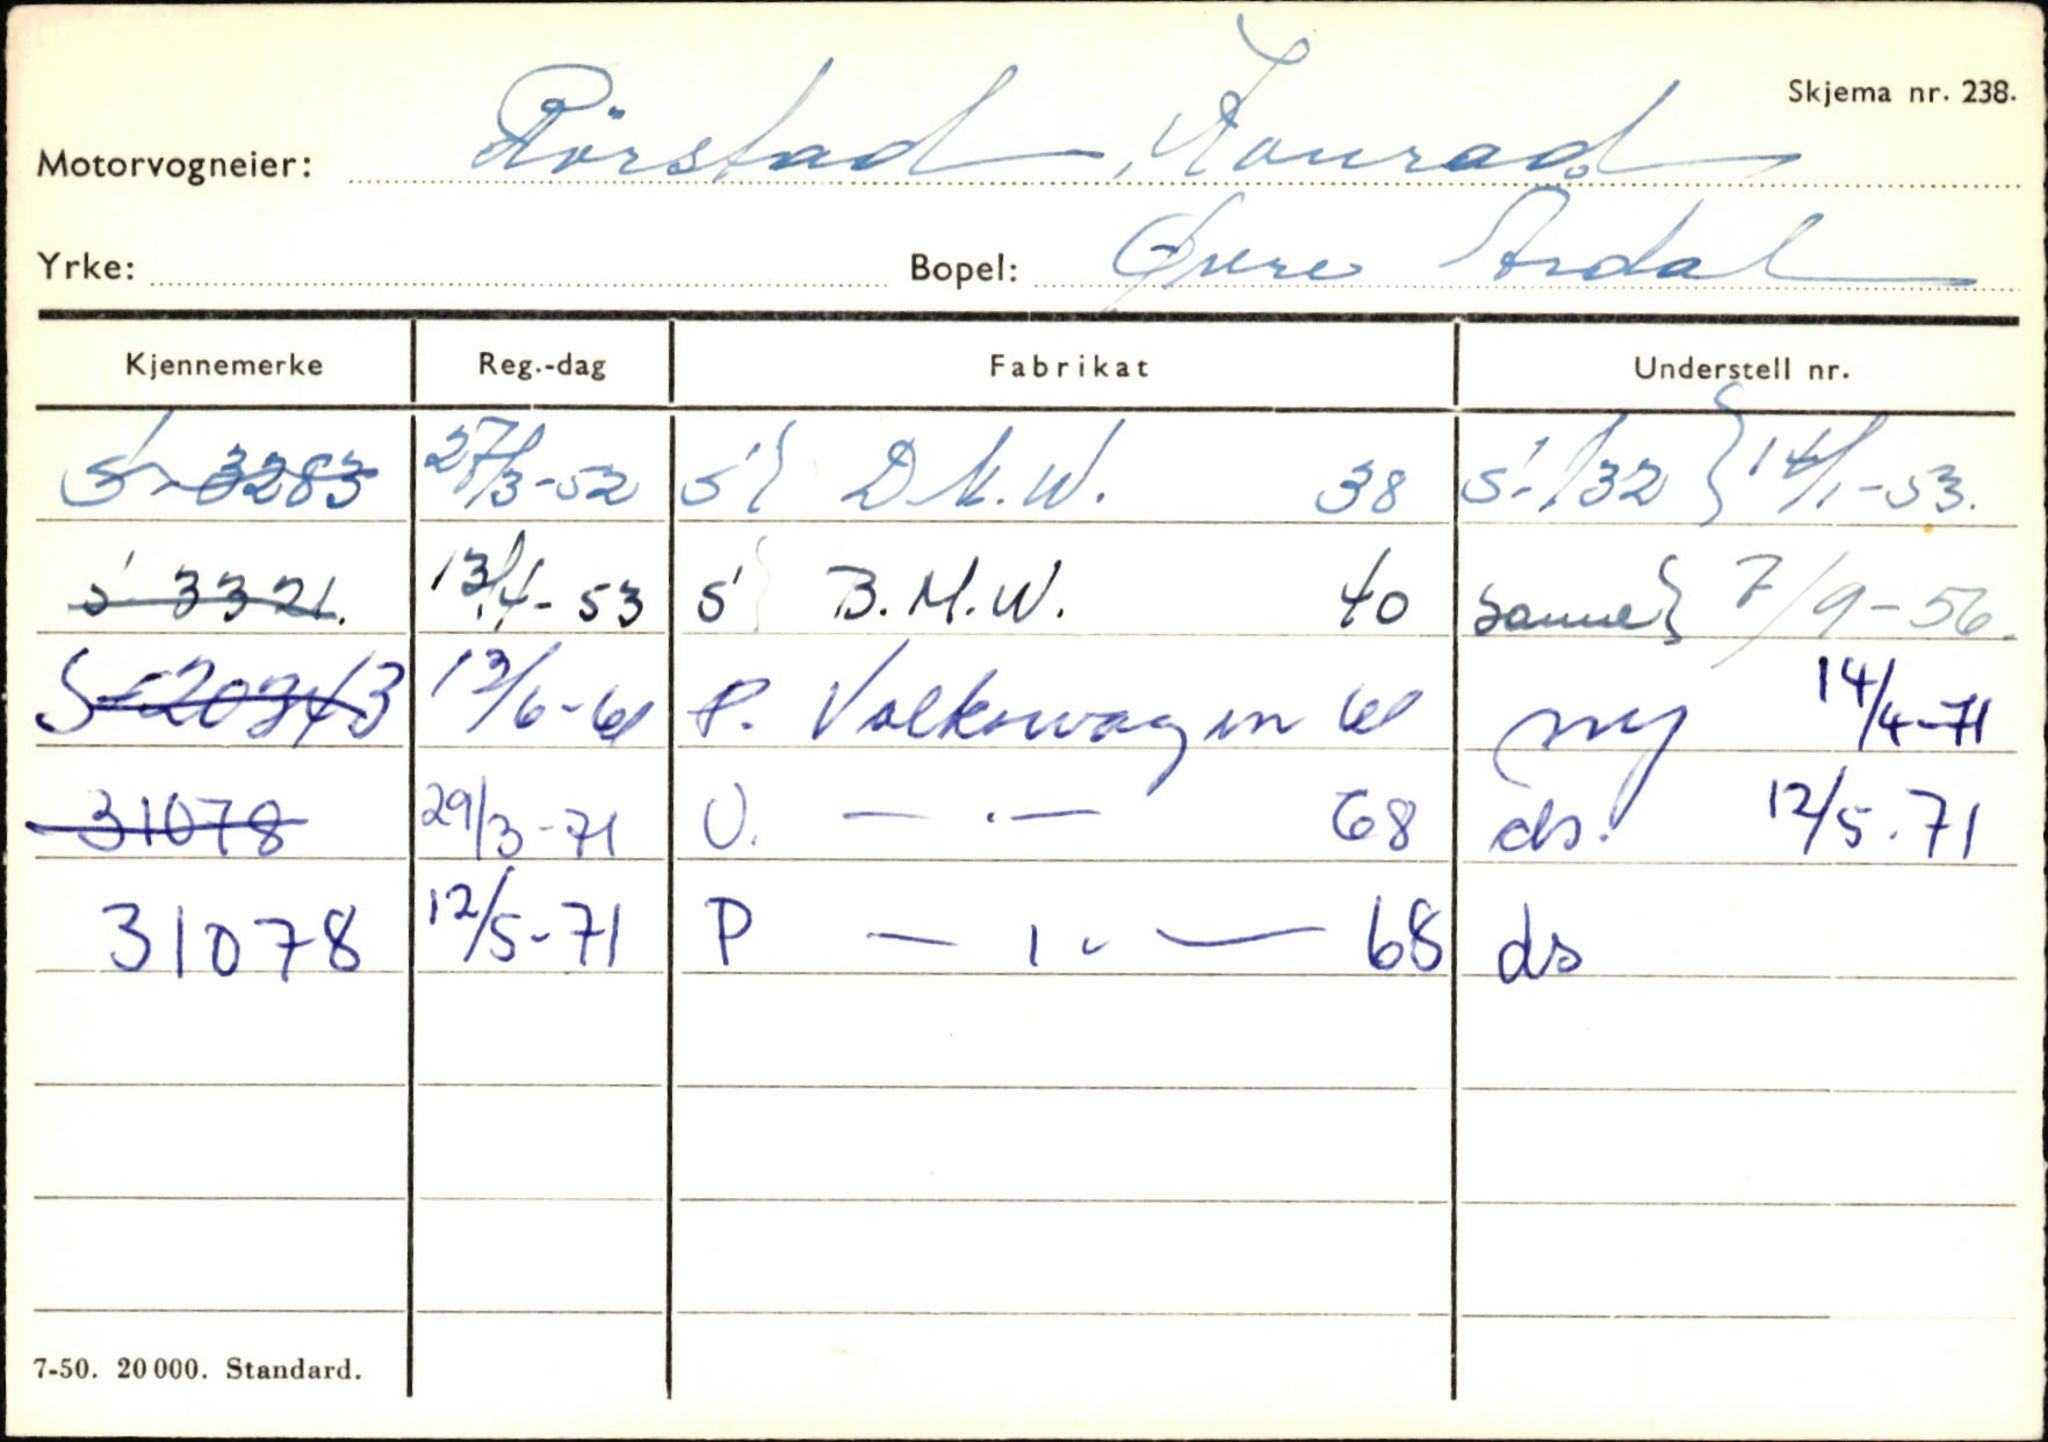 Skjema nr. 238.
Motorvogneier: Rörstad, Konrad
Yrke: Bopel: Øvre Årdal
Kjennemerke Reg.-dag Fabrikat Understell nr.
S-3283 27/3-52 S } D.K.W. 38 S-132 } 14/1-53.
S 3321. 13/4-53 S } B.M.W. 40 samme } 7/9-56.
S-20343 13/6-61 P. Volkswagen 61 ny 14/4-71
31078 29/3-71 V. — . — 68 ds. 12/5.71
31078 12/5-71 P — 1 - — 68 ds
7-50. 20 000. Standard.